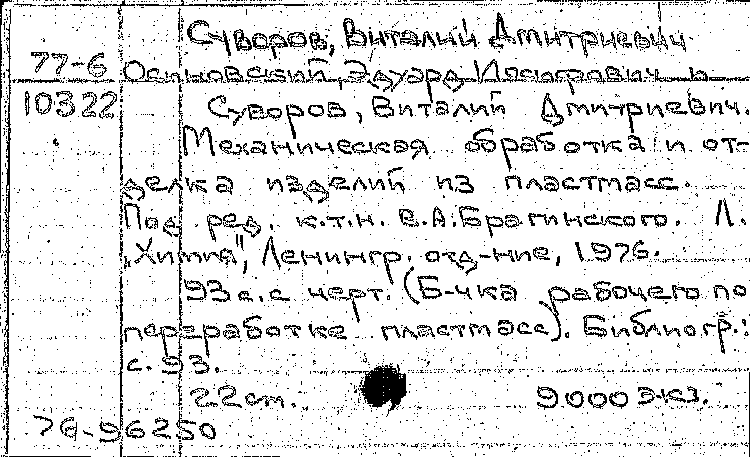 Суворов, Виталий Дмитриевич
77-6 Осиновский, Эдуард Иосифович и
10322 Суворов, Виталий Дмитриевич.
Механическая обработка и от-
делка изделий из пластмасс.
Под ред. к.т.н. В.А.Брагинского. Л.
"Химия", Ленингр. отд-ние, 1976.
93 с. с черт. (Б-чка рабочего по
переработке пластмасс). Библиогр.:
с. 93.
22 см. 9000 экз.
76-96250